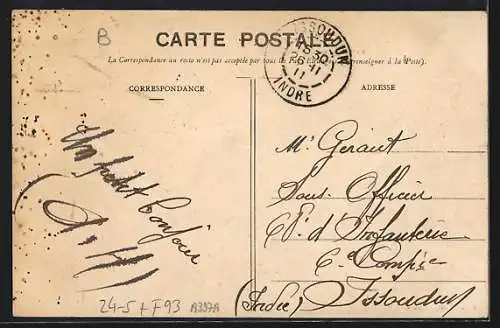 B
CARTE POSTALE
ISSOUDUN
INDRE
La Correspondance au recto n'est pas acceptée par tous renseigner à la Poste).
CORRESPONDANCE
ADRESSE
Un petit bonjour
Mr Geraut
Sous Officier
d'Infanterie
6e Compie
(Indre) Issoudun
24-5 + F93 A397A